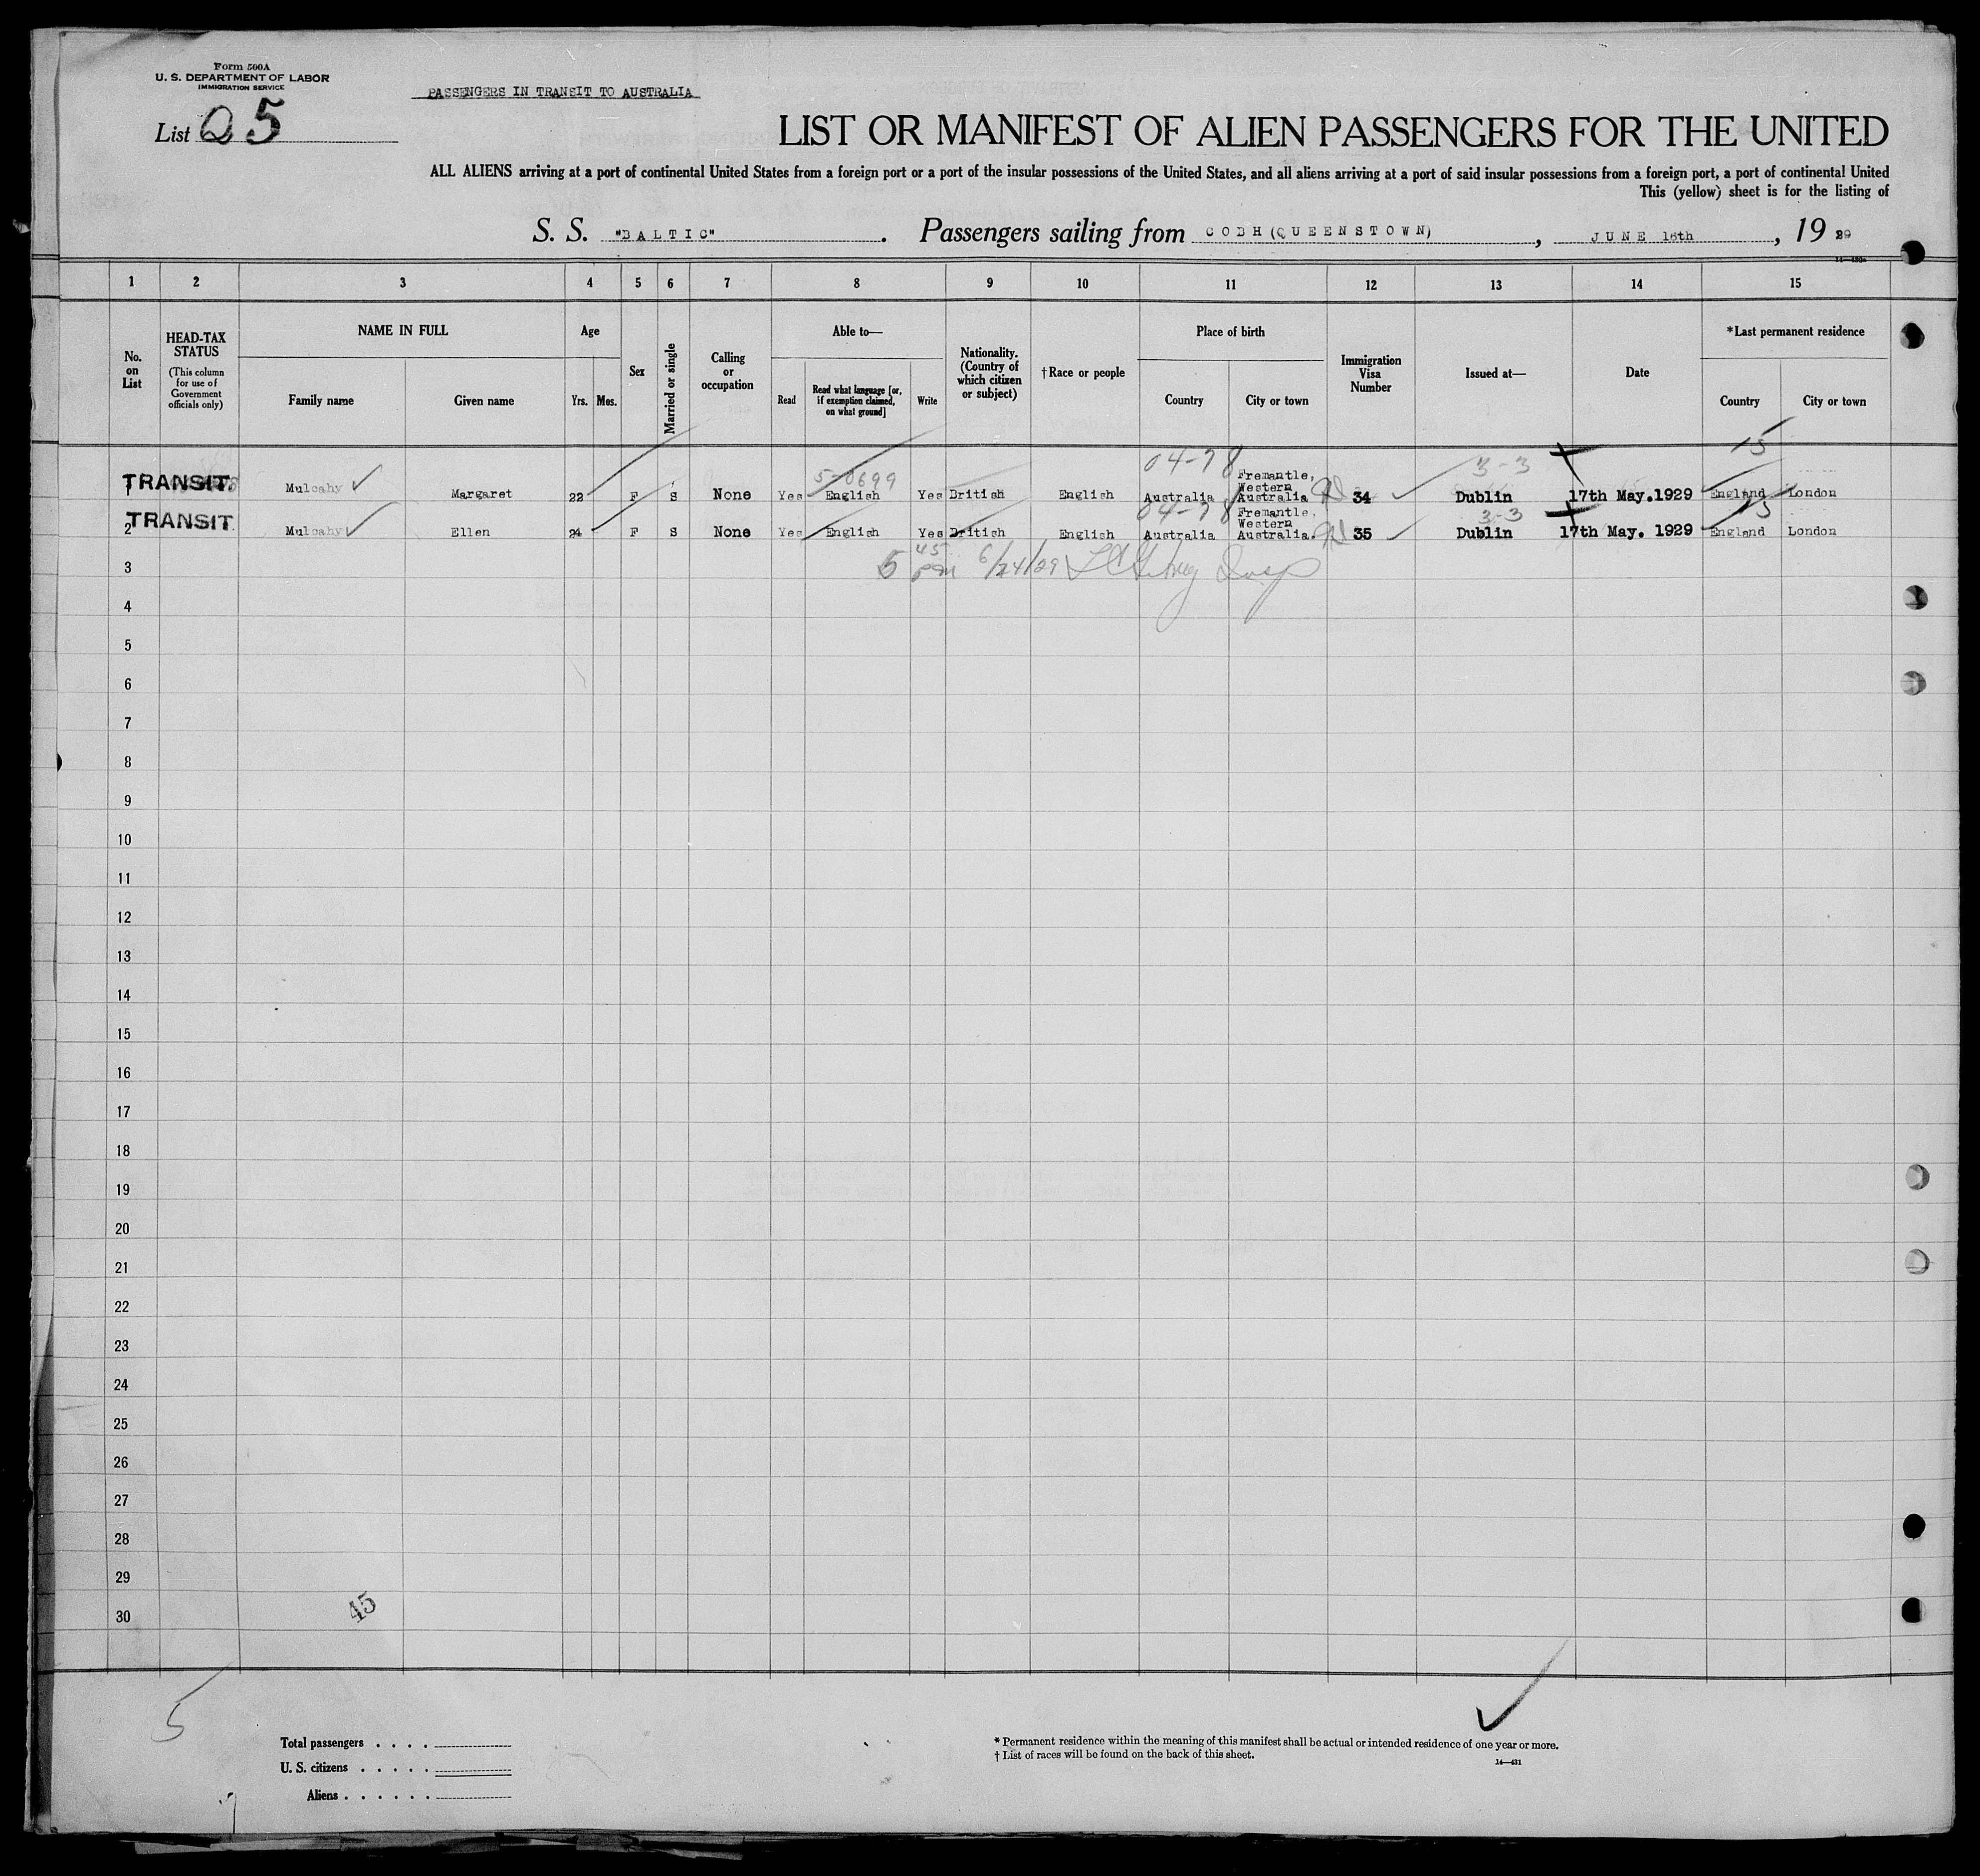 Form 500A
U. S. DEPARTMENT OF LABOR
IMMIGRATION SERVICE
PASSENGERS IN TRANSIT TO AUSTRALIA
List 25
LIST OR MANIFEST OF ALIEN PASSENGERS FOR THE UNITED
ALL ALIENS arriving at a port of continental United States from a foreign port or a port of the insular possessions of the United States, and all aliens arriving at a port of said insular possessions from a foreign port, a port of continental United
This (yellow) sheet is for the listing of
S. S. "BALTIC". Passengers sailing from COBH (QUEENSTOWN), JUNE 16th, 19 29
1 2 3 4 5 6 7 8 9 10 11 12 13 14 15
No. on List
HEAD-TAX STATUS
(This column for use of Government officials only)
NAME IN FULL
Family name Given name
Age
Yrs. Mos.
Sex
Married or single
Calling or occupation
Able to—
Read
Read what language [or, if exemption claimed, on what ground]
Write
Nationality. (Country of which citizen or subject)
† Race or people
Place of birth
Country City or town
Immigration Visa Number
Issued at—
Date
*Last permanent residence
Country City or town
04-78 3-3 15
5-0699
1 TRANSIT. Mulcahy Margaret 22 F S None Yes English Yes British English Australia Fremantle, Western Australia 34 Dublin 17th May.1929 England London
04-78 3-3 15
2 TRANSIT Mulcahy Ellen 24 F S None Yes English Yes British English Australia Fremantle, Western Australia. 35 Dublin 17th May. 1929 England London
3 5 45 pm 6/24/29 Insp
4
5
6
7
8
9
10
11
12
13
14
15
16
17
18
19
20
21
22
23
24
25
26
27
28
29
30
45
5
Total passengers . . . .
U. S. citizens . . . . .
Aliens . . . . . .
* Permanent residence within the meaning of this manifest shall be actual or intended residence of one year or more.
† List of races will be found on the back of this sheet.
14—431